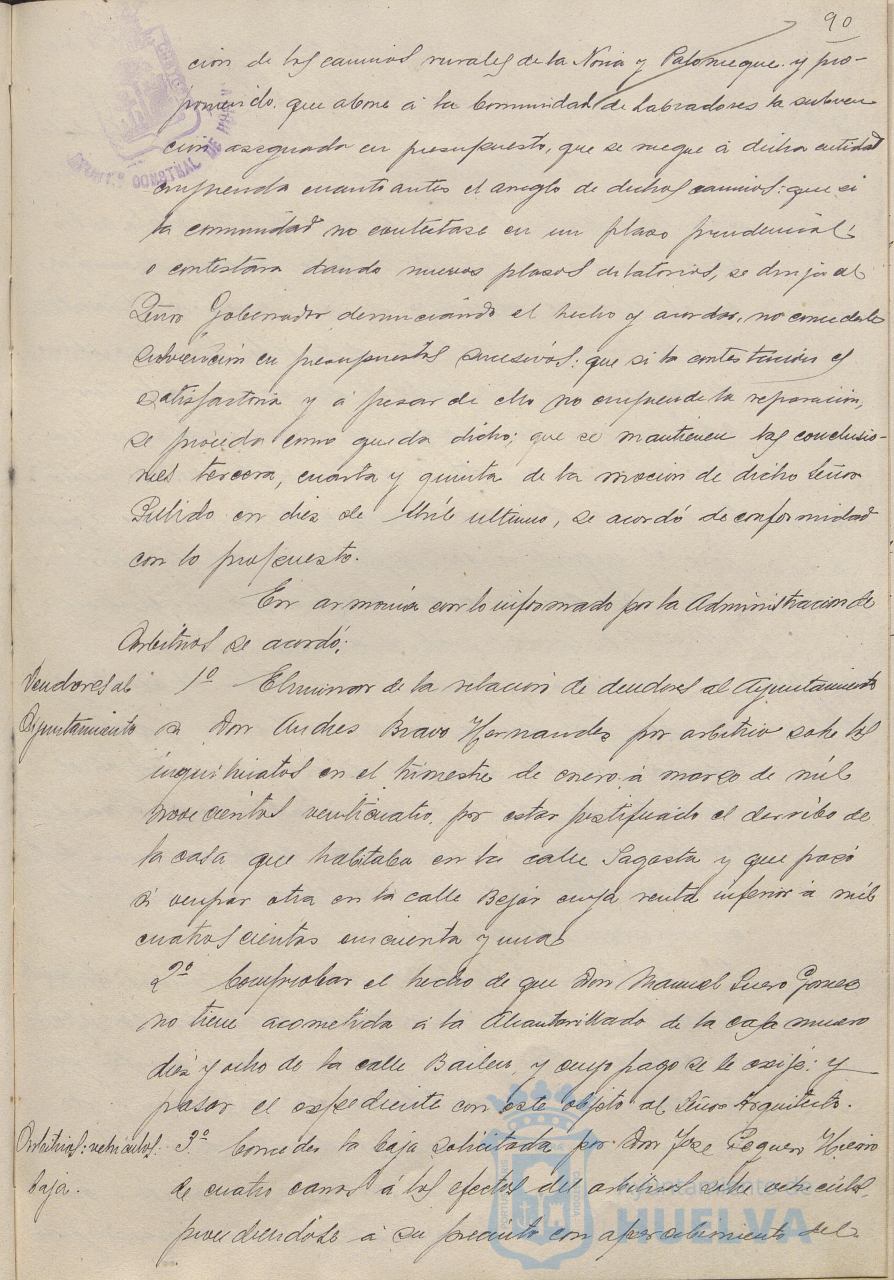 90
cion de los caminos rurales de la Noria y Palomeque y pro-
poniendo que abone á la Comunidad de Labradores la subven
cion asignada en presupuesto, que se ruegue á dicha entidad
emprenda cuanto antes el arreglo de dichos caminos: que si
la comunidad no contestase en un plazo prudencial
o contestara dando nuevos plazos dilatorios, se dirija al
Señor Gobernador denunciando el hecho y acordar, no concederle
subvención en presupuestos sucesivos: que si la contestacion es
satisfactoria y á pesar de ello no emprende la reparacion,
se proceda como queda dicho; que se mantienen las conclusio-
nes tercera, cuarta y quinta de la mocion de dicho Señor
Pulido en diez de Abril ultimo, se acordó de conformidad
con lo propuesto.
En armonia con lo informado por la Administracion de
Arbitrios se acordó:
Deudores al
Ayuntamiento
1º Eliminar de la relacion de deudores al Ayuntamiento
a Don Andres Bravo Hernandez por arbitrio sobre los
inquilinatos en el trimestre de enero á marzo de mil
novecientos veinticuatro, por estar justificado el derribo de
la casa que habitaba en la calle Sagasta y que pasó
á ocupar otra en la calle Bejar cuya renta inferior á mil
cuatrocientas cincuenta y una
2º Comprobar el hecho de que Don Manuel Suero Gomez
no tiene acometida á la Alcantarillado de la casa numero
diez y ocho de la calle Bailen, y cuyo pago se le exije: y
pasar el expediente con este objeto al Señor Arquitecto.
Arbitrios: vehiculos
baja.
3º Conceder la baja solicitada por Don Jose Peguero Hierro
de cuatro carros á los efectos del arbitrio sobre vehiculos,
procediendose á su precinto con apercibimiento del
Ayuntamiento de
HUELVA